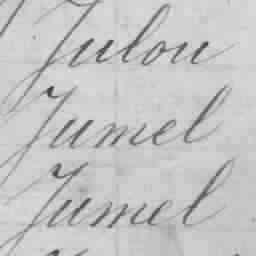 Julou
Jumel
Jumel